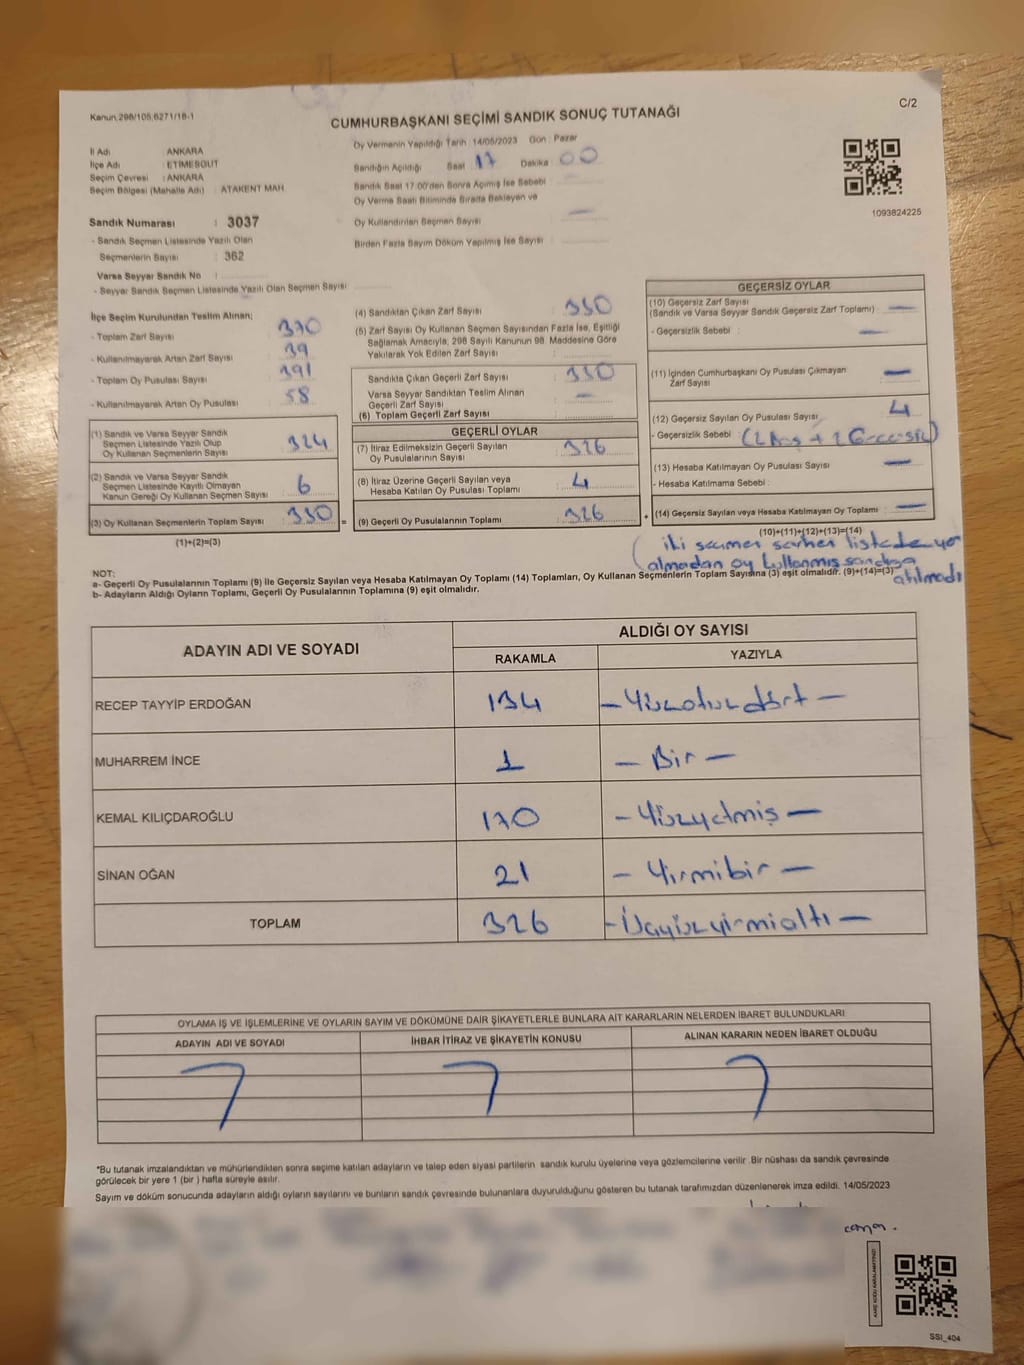 Kanun.298/105,6271/18-1
C/2
CUMHURBAŞKANI SEÇİMİ SANDIK SONUÇ TUTANAĞI
İl Adı : ANKARA
İlçe Adı : ETİMESGUT
Seçim Çevresi : ANKARA
Seçim Bölgesi (Mahalle Adı) : ATAKENT MAH
Oy Vermenin Yapıldığı Tarih :14/05/2023 Gün : Pazar
Sandığın Açıldığı Saat 17 Dakika 00
Sandık Saat 17:00'den Sonra Açılmış İse Sebebi :
Oy Verme Saati Bitiminde Sırada Bekleyen ve
Oy Kullandırılan Seçmen Sayısı : —
Birden Fazla Sayım Döküm Yapılmış İse Sayısı :
1093824225
Sandık Numarası : 3037
- Sandık Seçmen Listesinde Yazılı Olan
Seçmenlerin Sayısı : 362
Varsa Seyyar Sandık No :
- Seyyar Sandık Seçmen Listesinde Yazılı Olan Seçmen Sayısı:
İlçe Seçim Kurulundan Teslim Alınan;
- Toplam Zarf Sayısı : 370
- Kullanılmayarak Artan Zarf Sayısı : 39
- Toplam Oy Pusulası Sayısı : 391
- Kullanılmayarak Artan Oy Pusulası : 58
(1) Sandık ve Varsa Seyyar Sandık
Seçmen Listesinde Yazılı Olup
Oy Kullanan Seçmenlerin Sayısı : 324
(2) Sandık ve Varsa Seyyar Sandık
Seçmen Listesinde Kayıtlı Olmayan
Kanun Gereği Oy Kullanan Seçmen Sayısı : 6
(3) Oy Kullanan Seçmenlerin Toplam Sayısı : 330 =
(1)+(2)=(3)
(4) Sandıktan Çıkan Zarf Sayısı : 330
(5) Zarf Sayısı Oy Kullanan Seçmen Sayısından Fazla İse, Eşitliği
Sağlamak Amacıyla, 298 Sayılı Kanunun 98. Maddesine Göre
Yakılarak Yok Edilen Zarf Sayısı :
Sandıkta Çıkan Geçerli Zarf Sayısı : 330
Varsa Seyyar Sandıktan Teslim Alınan
Geçerli Zarf Sayısı : —
(6) Toplam Geçerli Zarf Sayısı :
GEÇERLİ OYLAR
(7) İtiraz Edilmeksizin Geçerli Sayılan
Oy Pusulalarının Sayısı : 326
(8) İtiraz Üzerine Geçerli Sayılan veya
Hesaba Katılan Oy Pusulası Toplamı : 4
(9) Geçerli Oy Pusulalarının Toplamı : 326 +
GEÇERSİZ OYLAR
(10) Geçersiz Zarf Sayısı
(Sandık ve Varsa Seyyar Sandık Geçersiz Zarf Toplamı) : —
- Geçersizlik Sebebi : —
(11) İçinden Cumhurbaşkanı Oy Pusulası Çıkmayan
Zarf Sayısı : —
(12) Geçersiz Sayılan Oy Pusulası Sayısı : 4
- Geçersizlik Sebebi : (2 Boş + 2 Geçersiz)
(13) Hesaba Katılmayan Oy Pusulası Sayısı : —
- Hesaba Katılmama Sebebi :
(14) Geçersiz Sayılan veya Hesaba Katılmayan Oy Toplamı : —
(10)+(11)+(12)+(13)=(14)
(iki seçmen listede
almadan oy kullanmış sandığa
atılmadı
NOT:
a- Geçerli Oy Pusulalarının Toplamı (9) ile Geçersiz Sayılan veya Hesaba Katılmayan Oy Toplamı (14) Toplamları, Oy Kullanan Seçmenlerin Toplam Sayısına (3) eşit olmalıdır. (9)+(14)=(3)
b- Adayların Aldığı Oyların Toplamı, Geçerli Oy Pusulalarının Toplamına (9) eşit olmalıdır.
ADAYIN ADI VE SOYADI
ALDIĞI OY SAYISI
RAKAMLA YAZIYLA
RECEP TAYYİP ERDOĞAN 134 — Yüzotuzdört —
MUHARREM İNCE 1 — Bir —
KEMAL KILIÇDAROĞLU 170 — Yüzyetmiş —
SİNAN OĞAN 21 — Yirmibir —
TOPLAM 326 — Üçyüzyirmialtı —
OYLAMA İŞ VE İŞLEMLERİNE VE OYLARIN SAYIM VE DÖKÜMÜNE DAİR ŞİKAYETLERLE BUNLARA AİT KARARLARIN NELERDEN İBARET BULUNDUKLARI
ADAYIN ADI VE SOYADI İHBAR İTİRAZ VE ŞİKAYETİN KONUSU ALINAN KARARIN NEDEN İBARET OLDUĞU
*Bu tutanak imzalandıktan ve mühürlendikten sonra seçime katılan adayların ve talep eden siyasi partilerin sandık kurulu üyelerine veya gözlemcilerine verilir .Bir nüshası da sandık çevresinde
görülecek bir yere 1 (bir ) hafta süreyle asılır.
Sayım ve döküm sonucunda adayların aldığı oyların sayılarını ve bunların sandık çevresinde bulunanlara duyurulduğunu gösteren bu tutanak tarafımızdan düzenlenerek imza edildi. 14/05/2023
KARE KODU KARALAMAYINIZ!
SSI_404